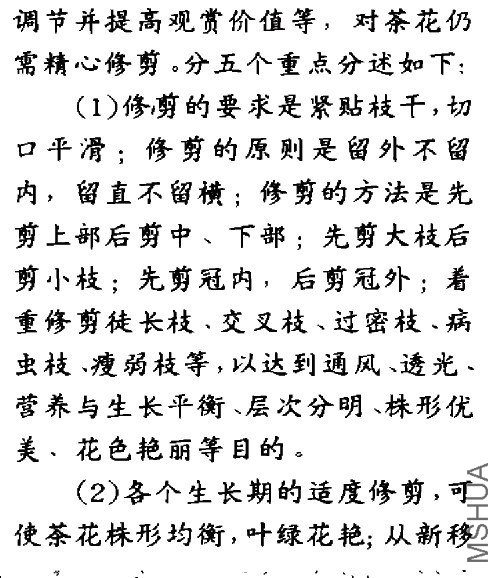 调节并提高观赏价值等，对茶花仍
需精心修剪。分五个重点分述如下：
(1)修剪的要求是紧贴枝干，切
口平滑；修剪的原则是留外不留
内，留直不留横；修剪的方法是先
剪上部后剪中、下部；先剪大枝后
剪小枝；先剪冠内，后剪冠外；着
重修剪徒长枝、交叉枝、过密枝、病
虫枝、瘦弱枝等，以达到通风、透光、
营养与生长平衡、层次分明、株形优
美、花色艳丽等目的。
(2)各个生长期的适度修剪，可
使茶花株形均衡，叶绿花艳；从新移
MSHUA